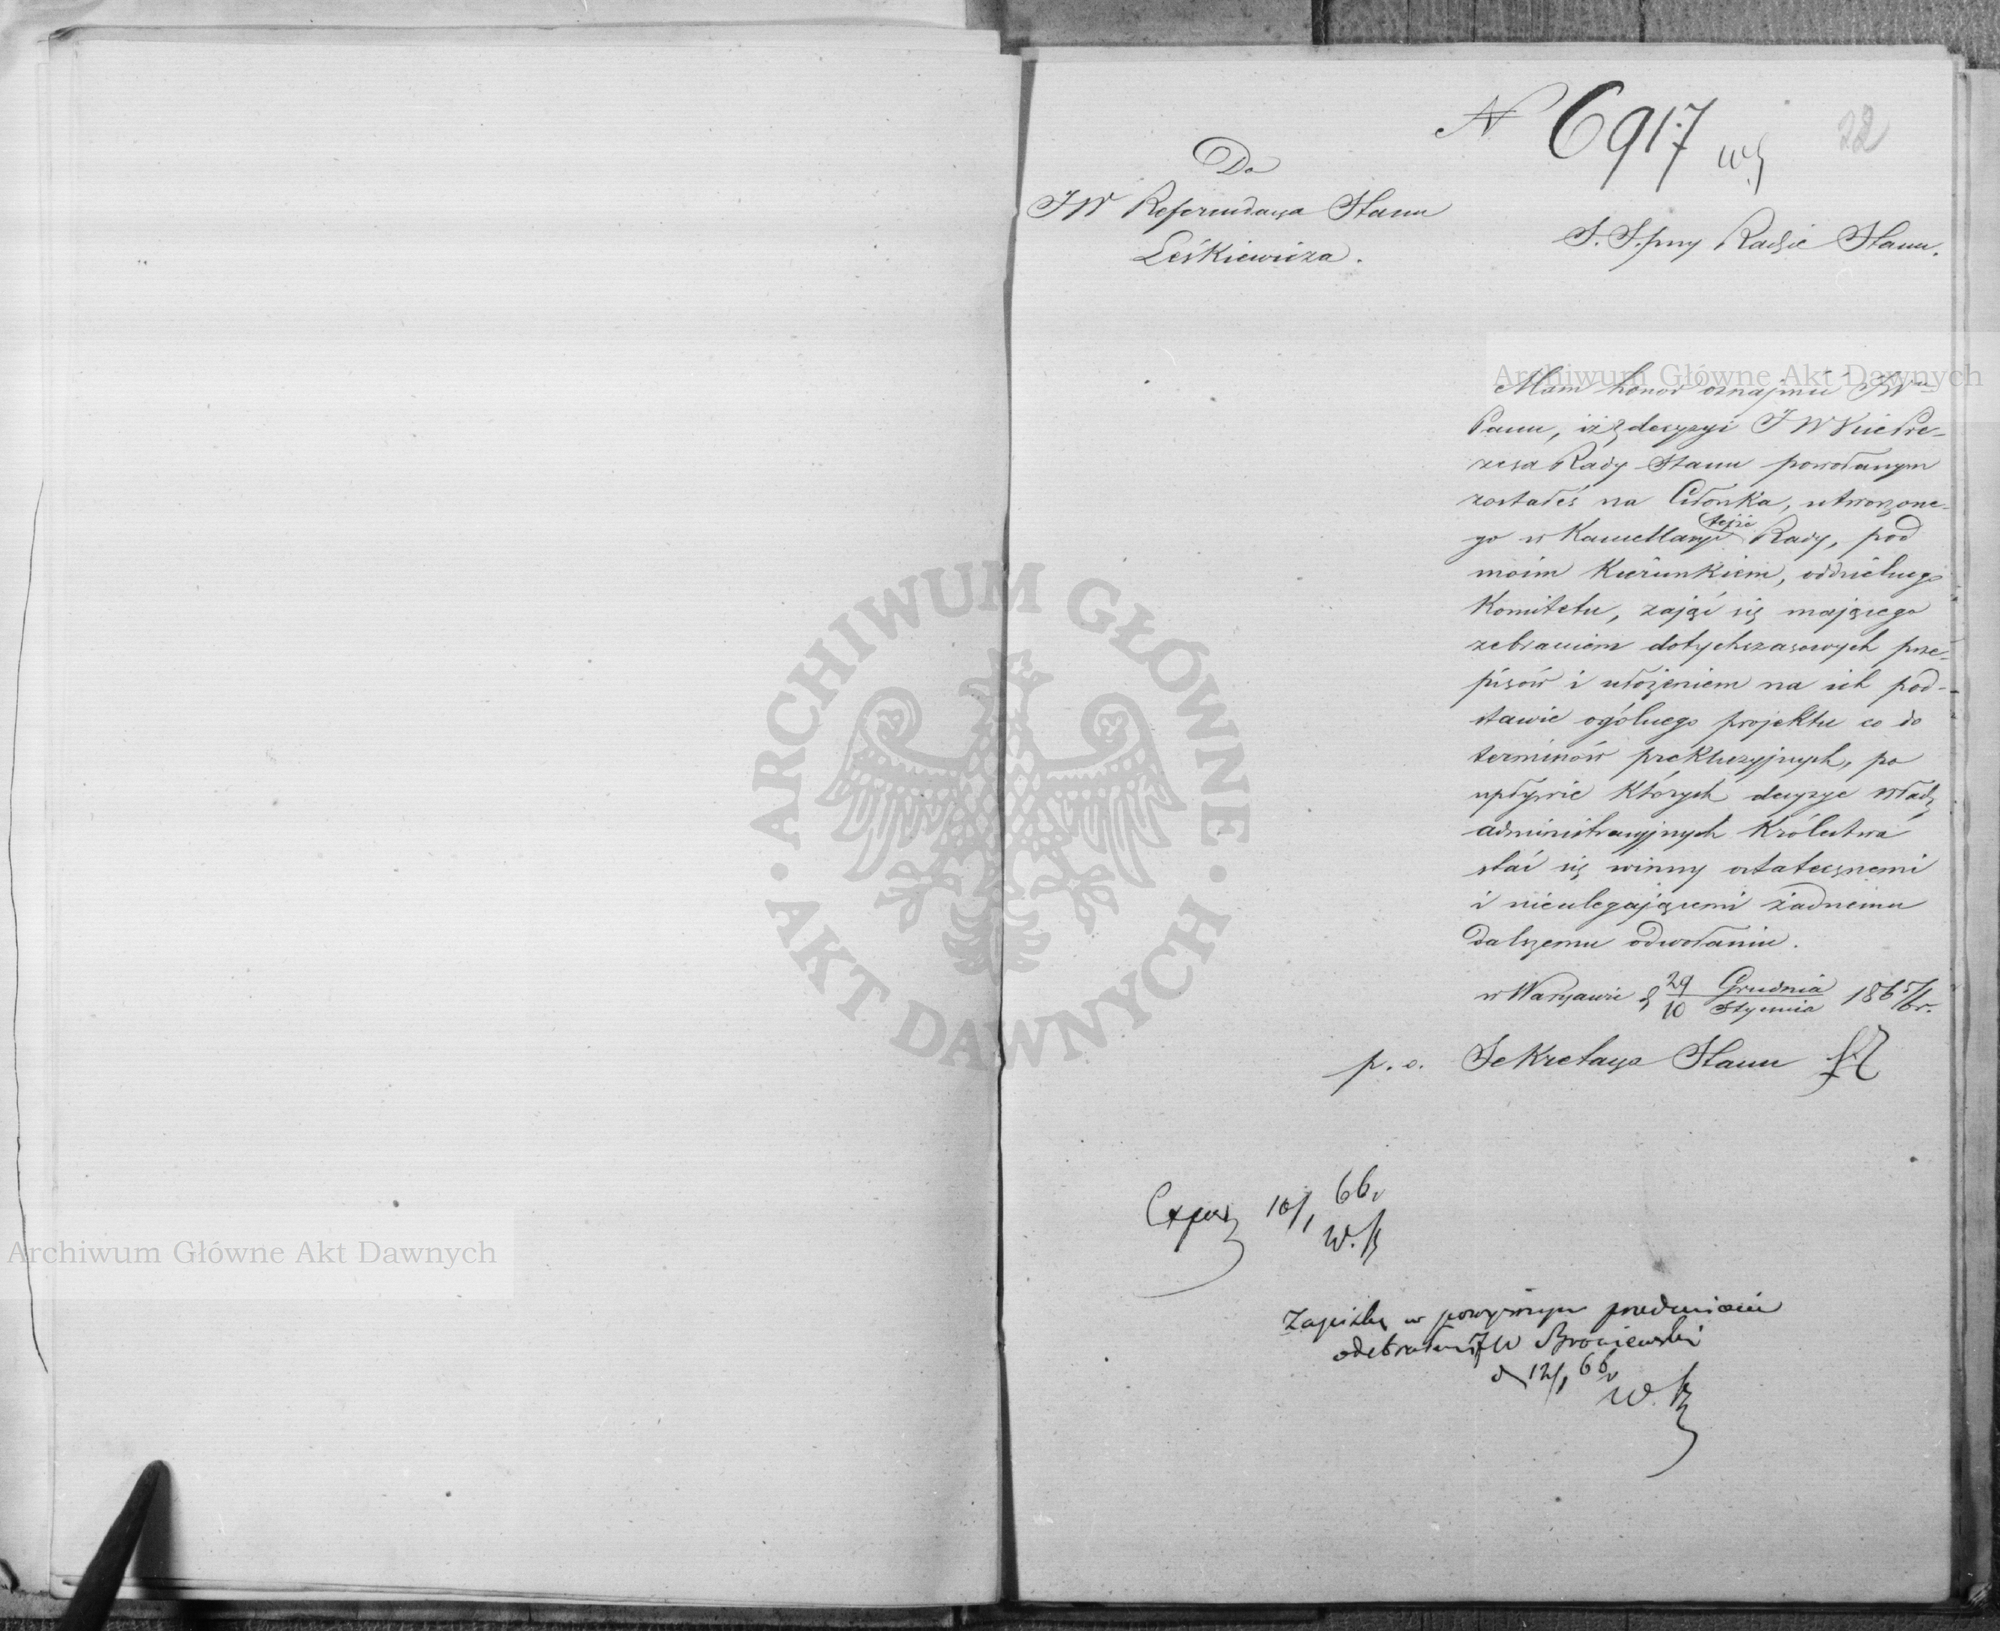 N 6917
22
Do
JW Referendarza Stanu
Leśkiewicza.
S. S. przy Radzie Stanu.
Mam honor oznajmić JWu
Panu, iż z decyzyi JW Vice Pre-
zesa Rady Stanu powołanym
zostałeś na Członka, utworzone-
go w Kancellaryi tejże Rady, pod
moim Kierunkiem, oddzielnego
Komitetu, zająć się mającego
zebraniem dotychczasowych prze-
pisów i ułożeniem na ich pod-
stawie ogólnego projektu co do
terminów prekluzyjnych, po
upływie których decyzye władz
administracyjnych Królestwa
stać się winny ostatecznemi
i nieulegającemi żadnemu
dalszemu odwołaniu.
w Warszawie d 29 Grudnia / 10 Stycznia 1865/6 r.
p. o. Sekretarza Stanu
Exped 10/1 66
Zapiskę w powyższym przedmiocie
odebrał JW Broniewski
d 12/1 66
Archiwum Główne Akt Dawnych
Archiwum Główne Akt Dawnych
ARCHIWUM GŁÓWNE · AKT DAWNYCH ·